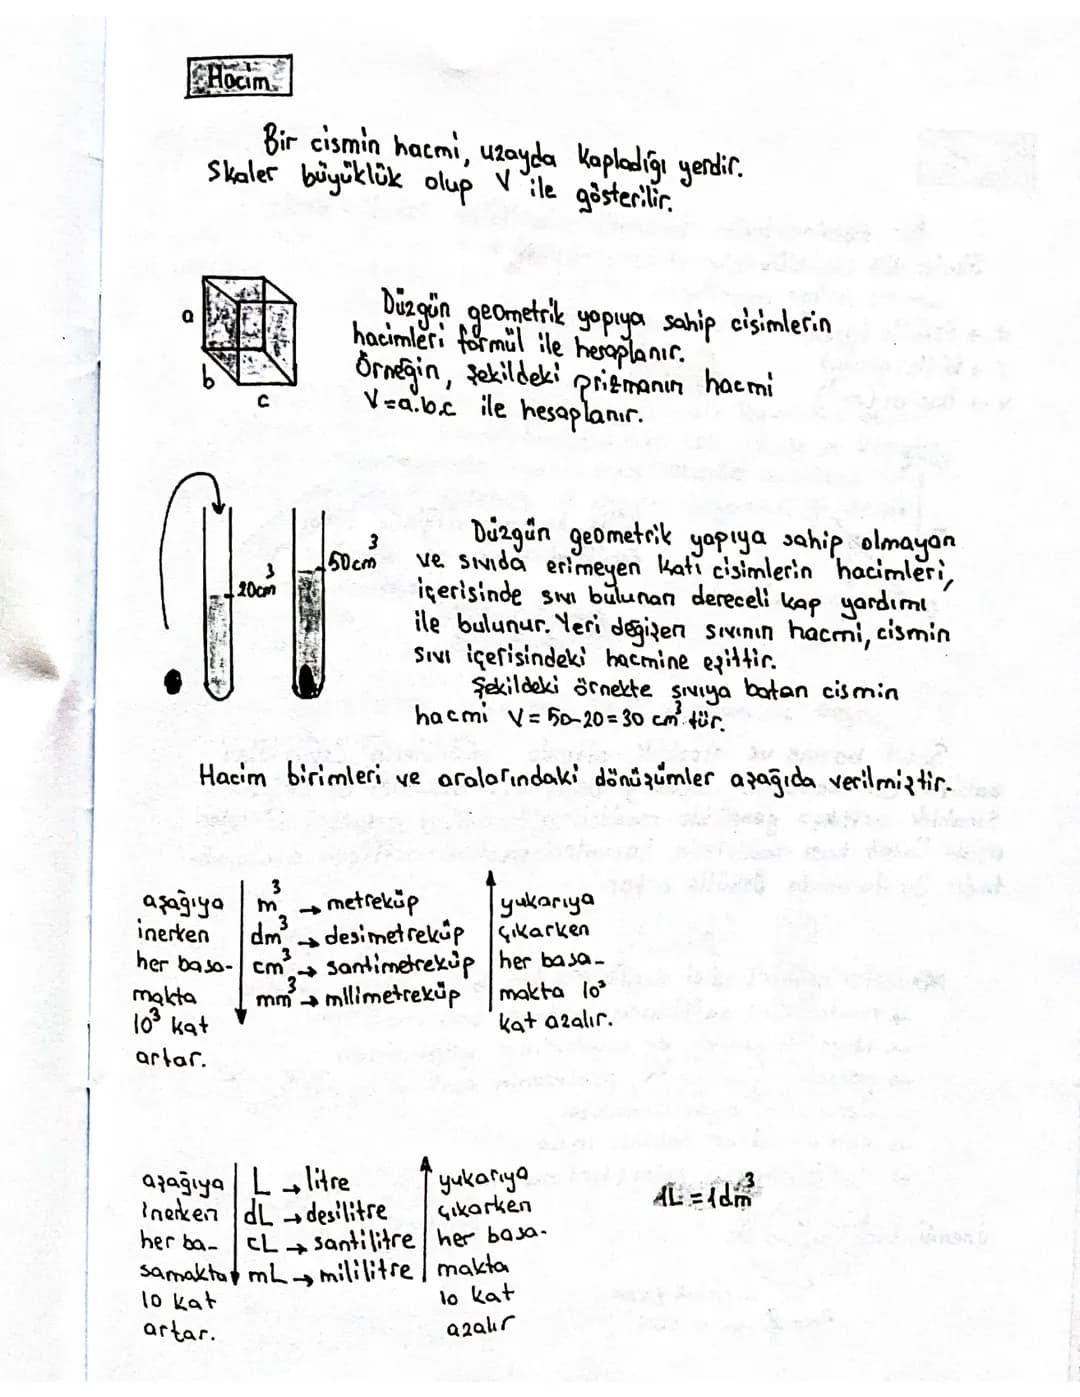 Hacim
Bir cismin hacmi, uzayda kapladığı yerdir.
Skaler büyüklük olup V ile gösterilir.
a
b
c
Düzgün geometrik yapıya sahip cisimlerin
hacimleri formül ile hesaplanır.
Örneğin, şekildeki prizmanın hacmi
V=a.b.c ile hesaplanır.
20cm³
50cm³
Düzgün geometrik yapıya sahip olmayan
ve sıvıda erimeyen katı cisimlerin hacimleri,
içerisinde sıvı bulunan dereceli kap yardımı
ile bulunur. Yeri değişen sıvının hacmi, cismin
sıvı içerisindeki hacmine eşittir.
Şekildeki örnekte sıvıya batan cismin
hacmi V=50-20=30 cm³ tür.
Hacim birimleri ve aralarındaki dönüşümler aşağıda verilmiştir.
aşağıya
inerken
her basa-
makta
10³ kat
artar.
m³ → metreküp
dm³ → desimetreküp
cm³ → santimetreküp
mm³ → milimetreküp
yukarıya
çıkarken
her basa-
makta 10³
kat azalır.
aşağıya
inerken
her ba-
samakta
10 kat
artar.
L → litre
dL → desilitre
cL → santilitre
mL → mililitre
yukarıya
çıkarken
her basa-
makta
10 kat
azalır
1L=1dm³